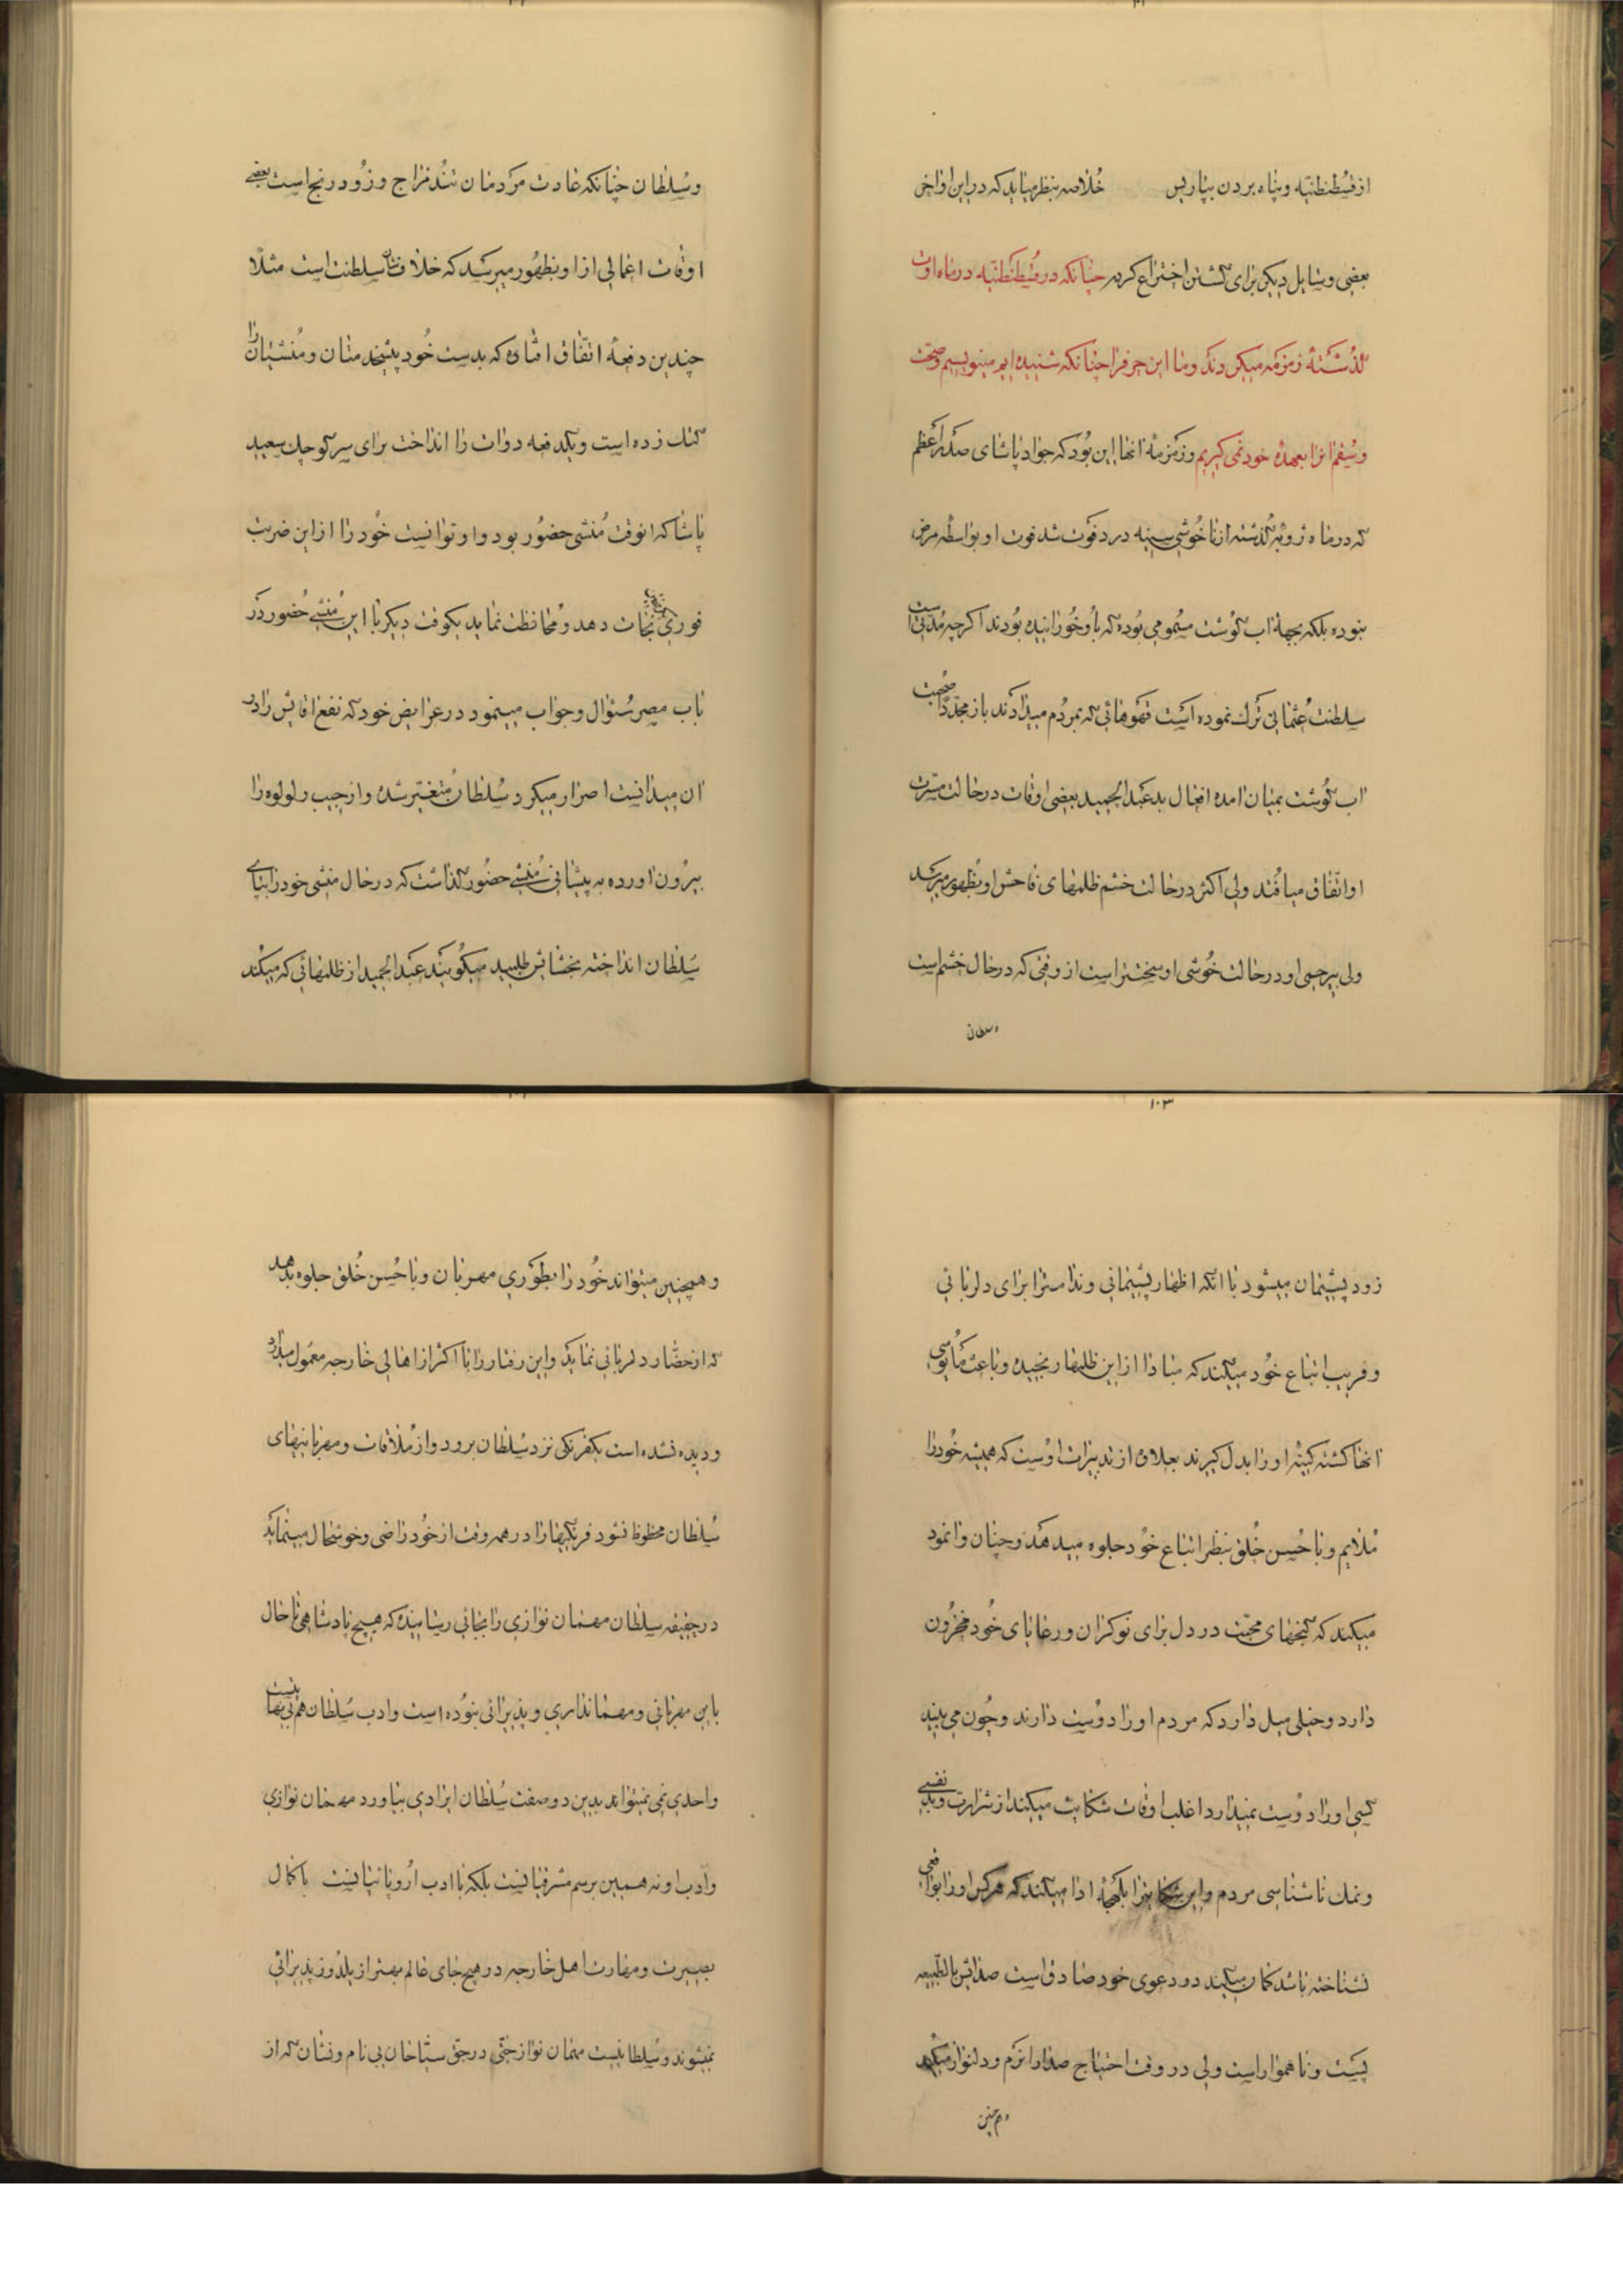 از قسطنطنیه و پناه بردن بپاریس خلاصه بنظر میاید که در این اواخر
بعضی وسایل دیگر برای کشتن اختراع کرده چنانکه در قسطنطنیه در ماه اوت
گذشته زمزمه میکردند و ما این حرفرا چنانکه شنیده ایم مینویسیم و صحت
و سقم انرا بعهده خود نمی کیریم و زمزمه انها این بود که جواد پاشای صدر اعظم
که در ماه ژویه گذشته از ناخوشی سینه درد فوت شد فوت او بواسطه مرض
نبوده بلکه بجهة اب گوشت مسمومی بوده که باو خورانیده بودند اکرچه مدتی است
سلطنت عثمانی ترک نموده است قهوهائی که بمردم میدادند باز مجددا صحبت
اب گوشت بمیان امده افعال بد عبدالحمید بعضی اوقات در حالت مسرت
او اتفاق میافتد ولی اکثر در حالت خشم ظلمهای فاحش او بظهور میرسد
ولی بیرحمی او در حالت خوشی او سختتر است از وقتی که در حال خشم است
و سلطان
و سلطان چنانکه عادت مردمان تند مزاج و زود رنج است بعضی
اوقات اعمالی از او بظهور میرسد که خلاف شان سلطنت است مثلا
چندین دفعه اتفاق افتاده که بدست خود پیشخدمتان و منشیان را
کتک زده است و یکدفعه دوات را انداخت برای سر کوچک سعید
پاشا که انوقت منشی حضور بود و او توانست خود را از این ضربت
فوری نجات دهد و محافظت نماید یکوقت دیکر با این منشی حضور در
باب مصر سئوال و جواب مینمود در عرایض خود که نفع اقایش را در
ان میدانست اصرار میکرد سلطان متغیر شده و از جیب رلولوه را
بیرون اورده به پیشانی منشی حضور گذاشت که در حال منشی خود را بپای
سلطان انداخته بخشایش طلبید میکویند عبدالحمید از ظلمهائی که میکند
۱۰۳
زود پشیمان میشود با انکه اظهار پشیمانی و ندامترا برای دلربائی
و فریب اتباع خود میکند که مبادا از این ظلمها رنجیده و باعث مأیوسی
انها کشته کینه او را بدل کیرند بعلاوه از تدبیرات اوست که همیشه خود را
ملایم و با حسن خلق بنظر اتباع خود جلوه میدهد و چنان وانمود
میکند که کنجهای محبت در دل برای نوکران و رعایای خود مخزون
دارد و خیلی میل دارد که مردم او را دوست دارند و چون می بیند
کسی او را دوست نمیدارد اغلب اوقات شکایت میکند از شرارت و بد نفسی
و نمک ناشناسی مردم و این شکایترا بلهجۀ ادا میکند که هرکس او را بواقعی
نشناخته باشد کمان میکند در دعوی خود صادق است صدایش بالطبیعه
پست و ناهموار است ولی در وقت احتیاج صدا را نرم و دلنواز میکند
و هم چنین
و همچنین میتواند خود را بطوری مهربان و با حسن خلق جلوه بدهد
که از حضار دلربائی نماید و این رفتار را با اکثر از اهالی خارجه معمول میدارد
و دیده نشده است یکفرنکی نزد سلطان برود و از ملاقات و مهربانیهای
سلطان محظوظ نشود فرنکیها را در همه وقت از خود راضی و خوشحال مینماید
در حقیقه سلطان مهمان نوازی را بجائی رسانیده که هیچ پادشاهی تا حال
باین مهربانی و مهمانداری و پذیرائی نبوده است و ادب سلطان هم بی نهایت
واحدی نمی تواند بدین دو صفت سلطان ایرادی بیاورد مهمان نوازی
و ادب او نه همین برسم مشرقیانیست بلکه با ادب اروپائیانیست با کمال
بصیرت و مهارت اهل خارجه در هیچ جای عالم بهتر از یلدوز پذیرائی
نمیشوند و سلطانیست مهمان نواز حتی در حق سیاحان بی نام و نشان که از